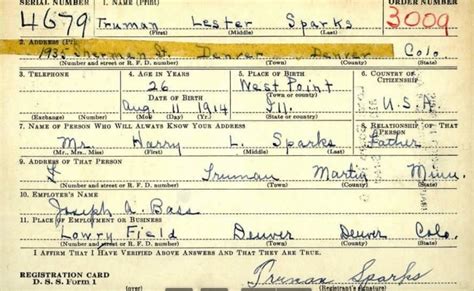 SERIAL NUMBER
ORDER NUMBER
4679 Truman Lester Sparks 3009
(First) (Middle) (Last)
2. ADDRESS
193 Sherman St Denver Denver Colo.
(Number and street or R. F. D. number) (Town) (County) (State)
3. TELEPHONE 4. AGE IN YEARS 5. PLACE OF BIRTH 6. COUNTRY OF CITIZENSHIP
26 West Point
DATE OF BIRTH (Town or county)
Aug. 11 1914 Ill. U.S.A
(Exchange) (Number) (Mo.) (Day) (Yr.) (State or country)
7. NAME OF PERSON WHO WILL ALWAYS KNOW YOUR ADDRESS 8. RELATIONSHIP OF THAT PERSON
Mr. Harry L. Sparks Father
(Mr., Mrs., Miss) (First) (Middle) (Last)
9. ADDRESS OF THAT PERSON
Truman Martin Minn.
(Number and street or R. F. D. number) (Town) (County) (State)
10. EMPLOYER'S NAME
Joseph A. Bass
11. PLACE OF EMPLOYMENT OR BUSINESS
Lowry Field Denver Denver Colo.
(Number and street or R. F. D. number) (Town) (County) (State)
I AFFIRM THAT I HAVE VERIFIED ABOVE ANSWERS AND THAT THEY ARE TRUE.
REGISTRATION CARD
D. S. S. Form 1
Truman Sparks
(Registrant's signature)